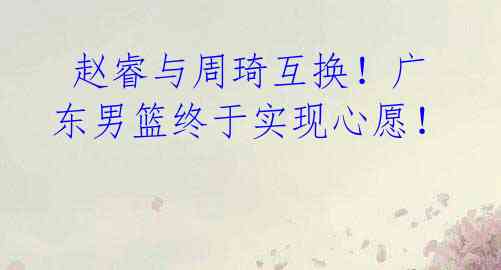 赵睿与周琦互换！广
东男篮终于实现心愿！